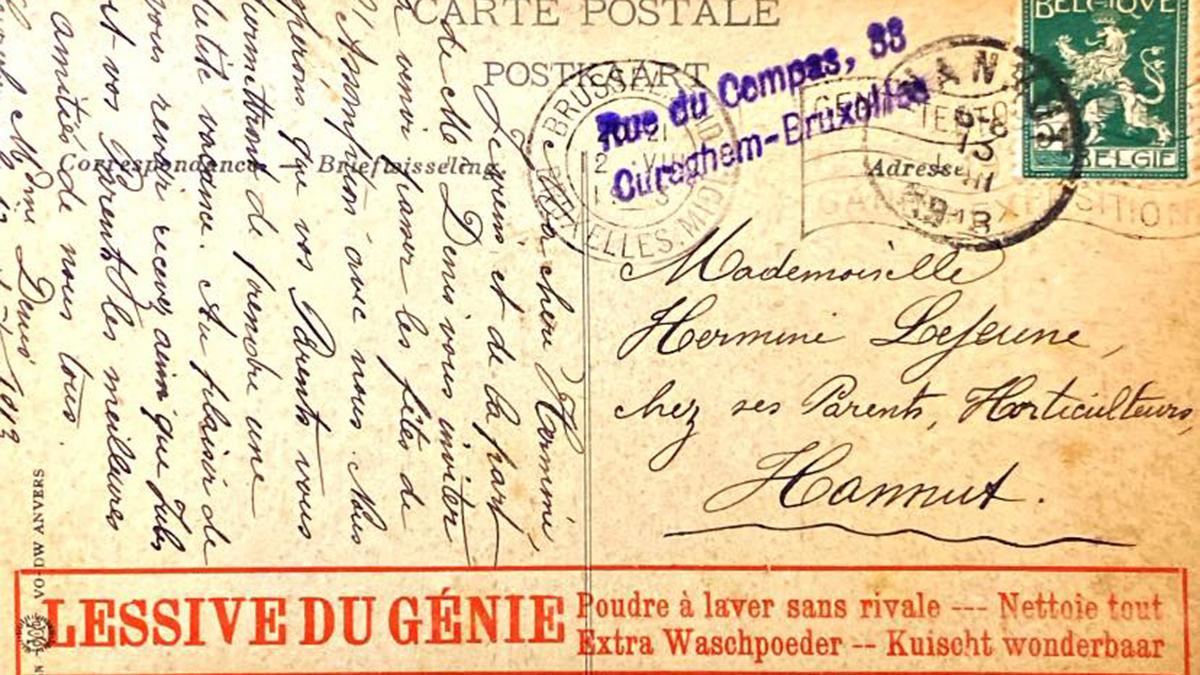 CARTE POSTALE
POSTKAART
Correspondance - Briefwisseling
Adresse
Rue du Compas, 33
Cureghem-Bruxelles
BRUSSEL
BRUXELLES.MIDI
HANNUT
13
1913
BELGIQUE
BELGIE
Ma chère Hermine,
Je viens et de la part
de Me Denis vous inviter
à venir passer les fêtes de
l'Assomption avec nous. Nous
espérons que vos Parents vous
permettront de prendre une
petite vacance. Au plaisir de
vous revoir recevez ainsi que Jules
et vos Parents les meilleures
amitiés de nous tous.
Mme Denis
1913
Mademoiselle
Hermine Lejeune,
chez ses Parents, Horticulteurs,
Hannut.
VO-DW ANVERS
LESSIVE DU GÉNIE
Poudre à laver sans rivale --- Nettoie tout
Extra Waschpoeder -- Kuischt wonderbaar